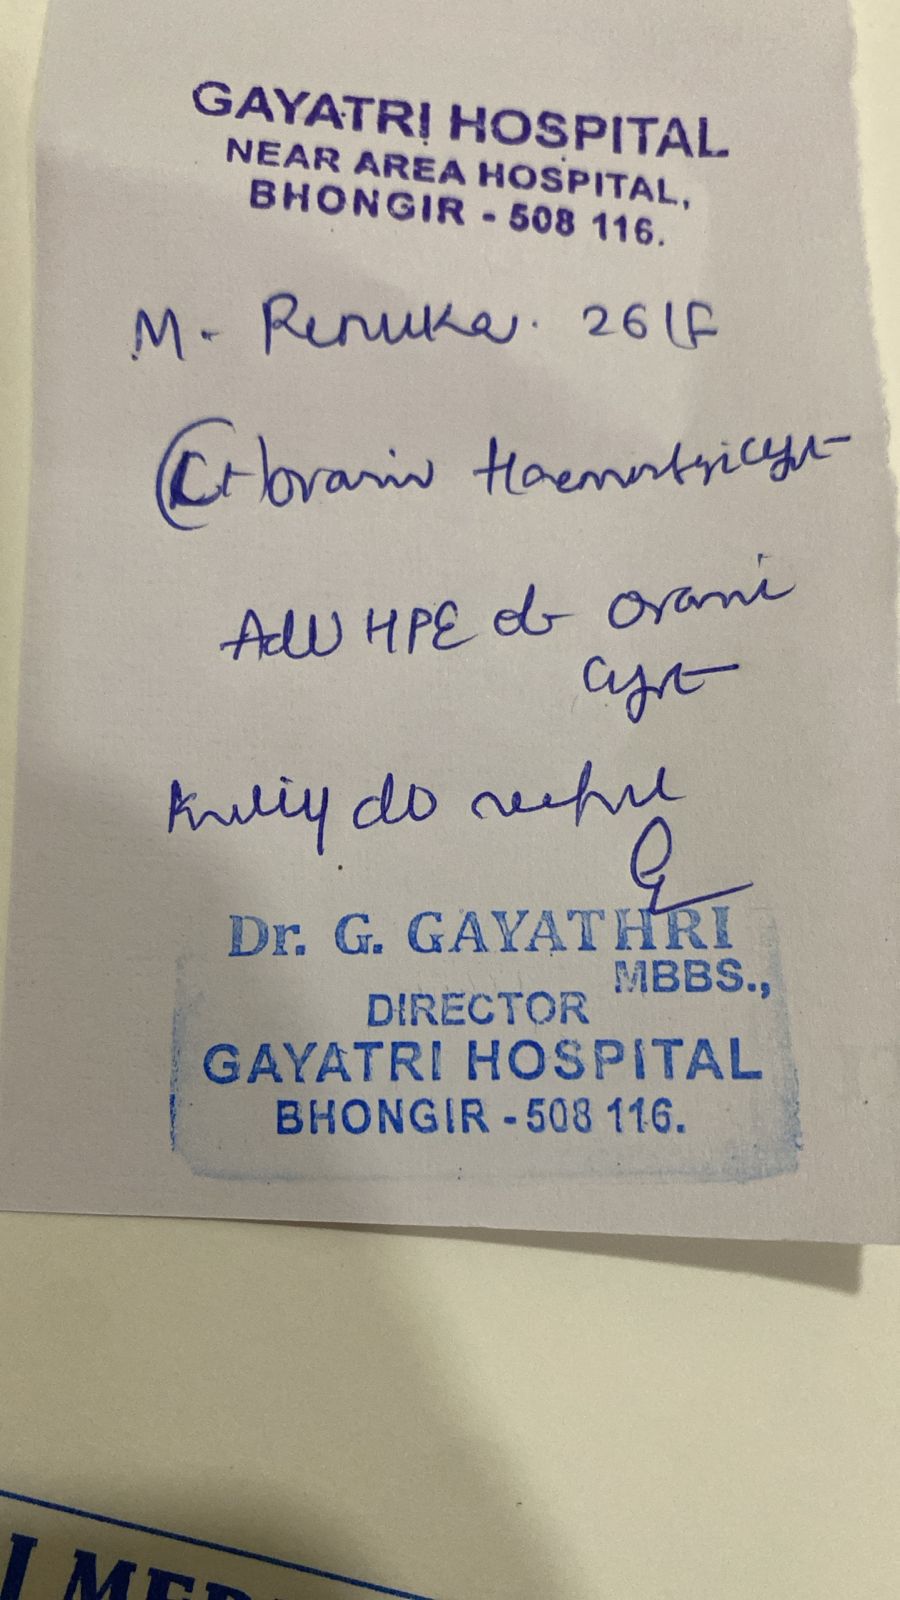 GAYATRI HOSPITAL
NEAR AREA HOSPITAL,
BHONGIR - 508 116.
M. Renuka. 26/F
(Lt) ovarian Haemorrhagic cyst
Adv HPE of ovarian
cyst
Kindly do needful
Dr. G. GAYATHRI
MBBS.,
DIRECTOR
GAYATRI HOSPITAL
BHONGIR - 508 116.